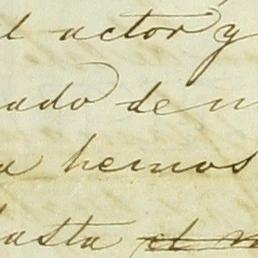 l actor y
ado de m
a hemos
hasta el